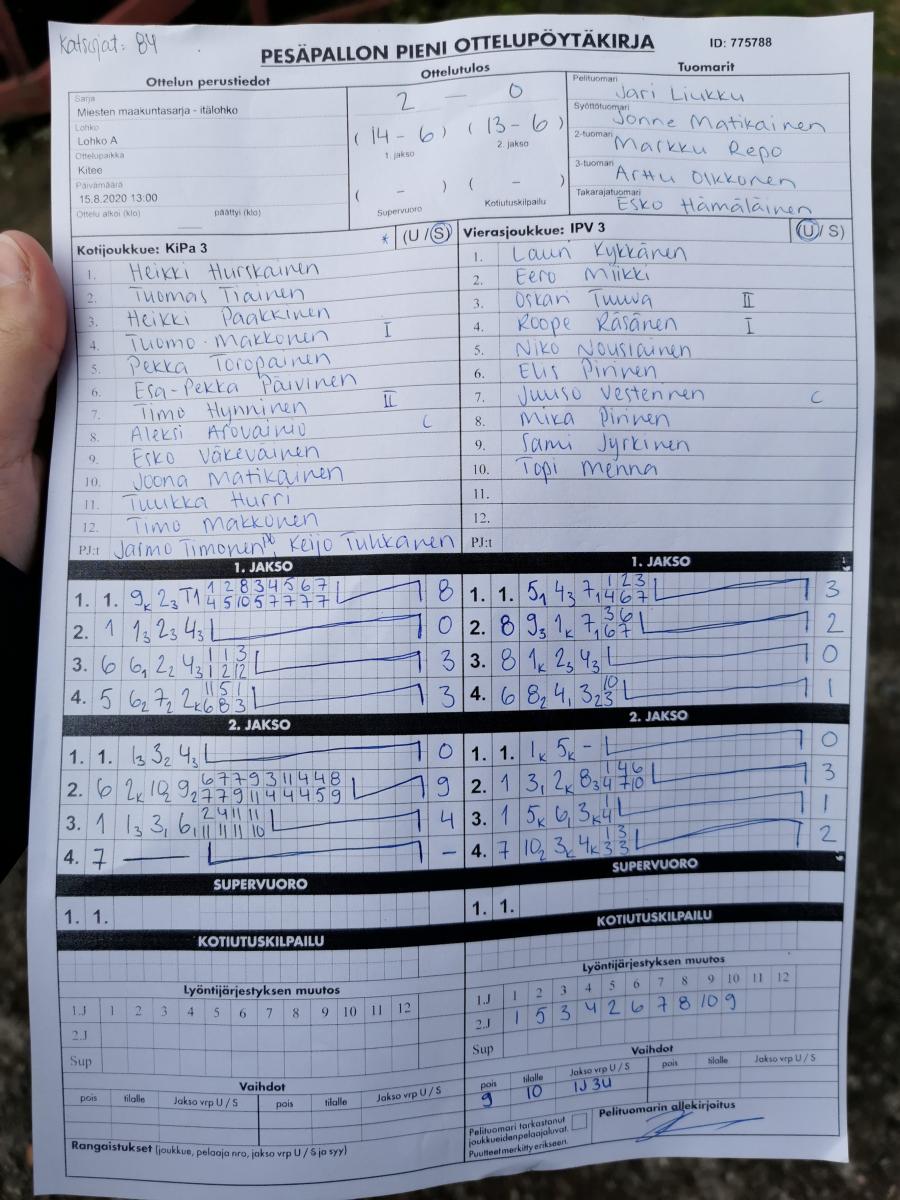 Katsojat: 84
PESÄPALLON PIENI OTTELUPÖYTÄKIRJA
ID: 775788
Ottelun perustiedot
Sarja
Miesten maakuntasarja - itälohko
Lohko
Lohko A
Ottelupaikka
Kitee
Päivämäärä
15.8.2020 13:00
Ottelu alkoi (klo) päättyi (klo)
Ottelutulos
2 — 0
( 14 - 6 ) ( 13 - 6 )
1. jakso 2. jakso
( - ) ( - )
Supervuoro Kotiutuskilpailu
Tuomarit
Pelituomari
Jari Liukku
Syöttötuomari
Jonne Matikainen
2-tuomari
Markku Repo
3-tuomari
Arttu Oikkonen
Takarajatuomari
Esko Hämäläinen
Kotijoukkue: KiPa 3 * (U / S)
1. Heikki Hurskainen
2. Tuomas Tiainen
3. Heikki Paakkinen
4. Tuomo Makkonen I
5. Pekka Toropainen
6. Esa-Pekka Päivinen
7. Timo Hynninen II
8. Aleksi Arovainio C
9. Esko Väkeväinen
10. Joona Matikainen
11. Tuukka Hurri
12. Timo Makkonen
PJ:t Jarmo Timonen, Keijo Tuhkanen
Vierasjoukkue: IPV 3 (U / S)
1. Lauri Kykkänen
2. Eero Miikki
3. Oskari Tuuva II
4. Roope Räsänen I
5. Niko Nousiainen
6. Elis Pirinen
7. Juuso Vesterinen C
8. Mika Pirinen
9. Sami Jyrkinen
10. Topi Menna
11.
12.
PJ:t
1. JAKSO
1. 1. 9K 23 T1 1 2 8 3 4 5 6 7 8
4 5 10 5 7 7 7 7
2. 1 13 23 43 0
3. 6 61 22 43 1 1 3 3
1 2 12
4. 5 62 72 2K 11 5 1 3
6 8 3
2. JAKSO
1. 1. 13 32 43 0
2. 6 2K 102 92 6 7 7 9 3 11 4 4 8 9
7 7 9 11 4 4 4 5 9
3. 1 13 31 61 2 4 11 11 4
11 11 11 10
4. 7 — –
SUPERVUORO
1. 1.
KOTIUTUSKILPAILU
Lyöntijärjestyksen muutos
1.J 1 2 3 4 5 6 7 8 9 10 11 12
2.J
Sup
Vaihdot
pois tilalle Jakso vrp U / S pois tilalle Jakso vrp U / S
Rangaistukset (joukkue, pelaaja nro, jakso vrp U / S ja syy)
1. JAKSO
1. 1. 51 43 71 1 2 3 3
4 6 7
2. 8 93 1K 71 3 6 2
6 7
3. 8 1K 23 43 0
4. 6 82 41 32 10 1
3
2. JAKSO
1. 1. 1K 5K - 0
2. 1 31 2K 83 1 4 6 3
4 7 10
3. 1 5K 61 3K 1 1
4
4. 7 102 3K 4K 1 3 2
3 3
SUPERVUORO
1. 1.
KOTIUTUSKILPAILU
Lyöntijärjestyksen muutos
1.J 1 2 3 4 5 6 7 8 9 10 11 12
2.J 1 5 3 4 2 6 7 8 10 9
Sup
Vaihdot
pois tilalle Jakso vrp U / S pois tilalle Jakso vrp U / S
9 10 1J3U
Pelituomari tarkastanut
joukkueiden pelaajaluvat.
Puutteet merkitty erikseen.
Pelituomarin allekirjoitus